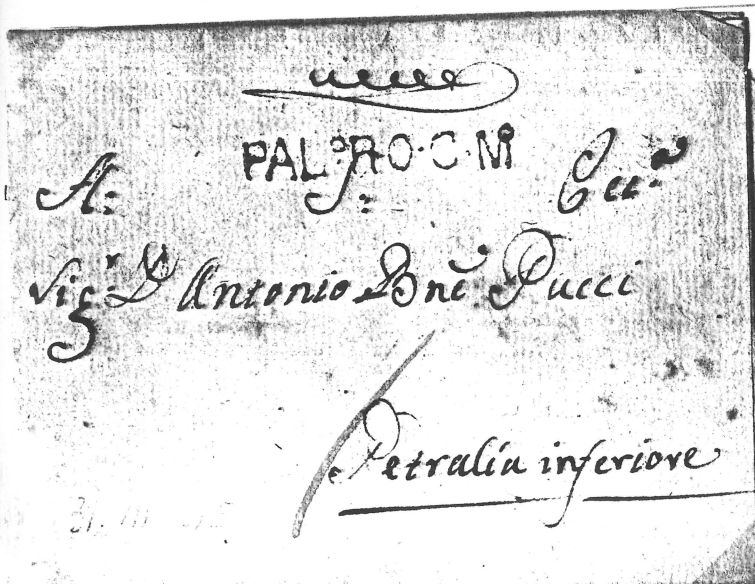 PALº RO·C·Mº
A: S: Ecc.ª
Sig.r D. Antonio Bnē Pucci
Petralia inferiore